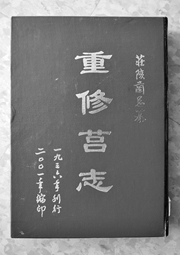 重修莒志
一九三六年刊行
二〇〇一年縮印